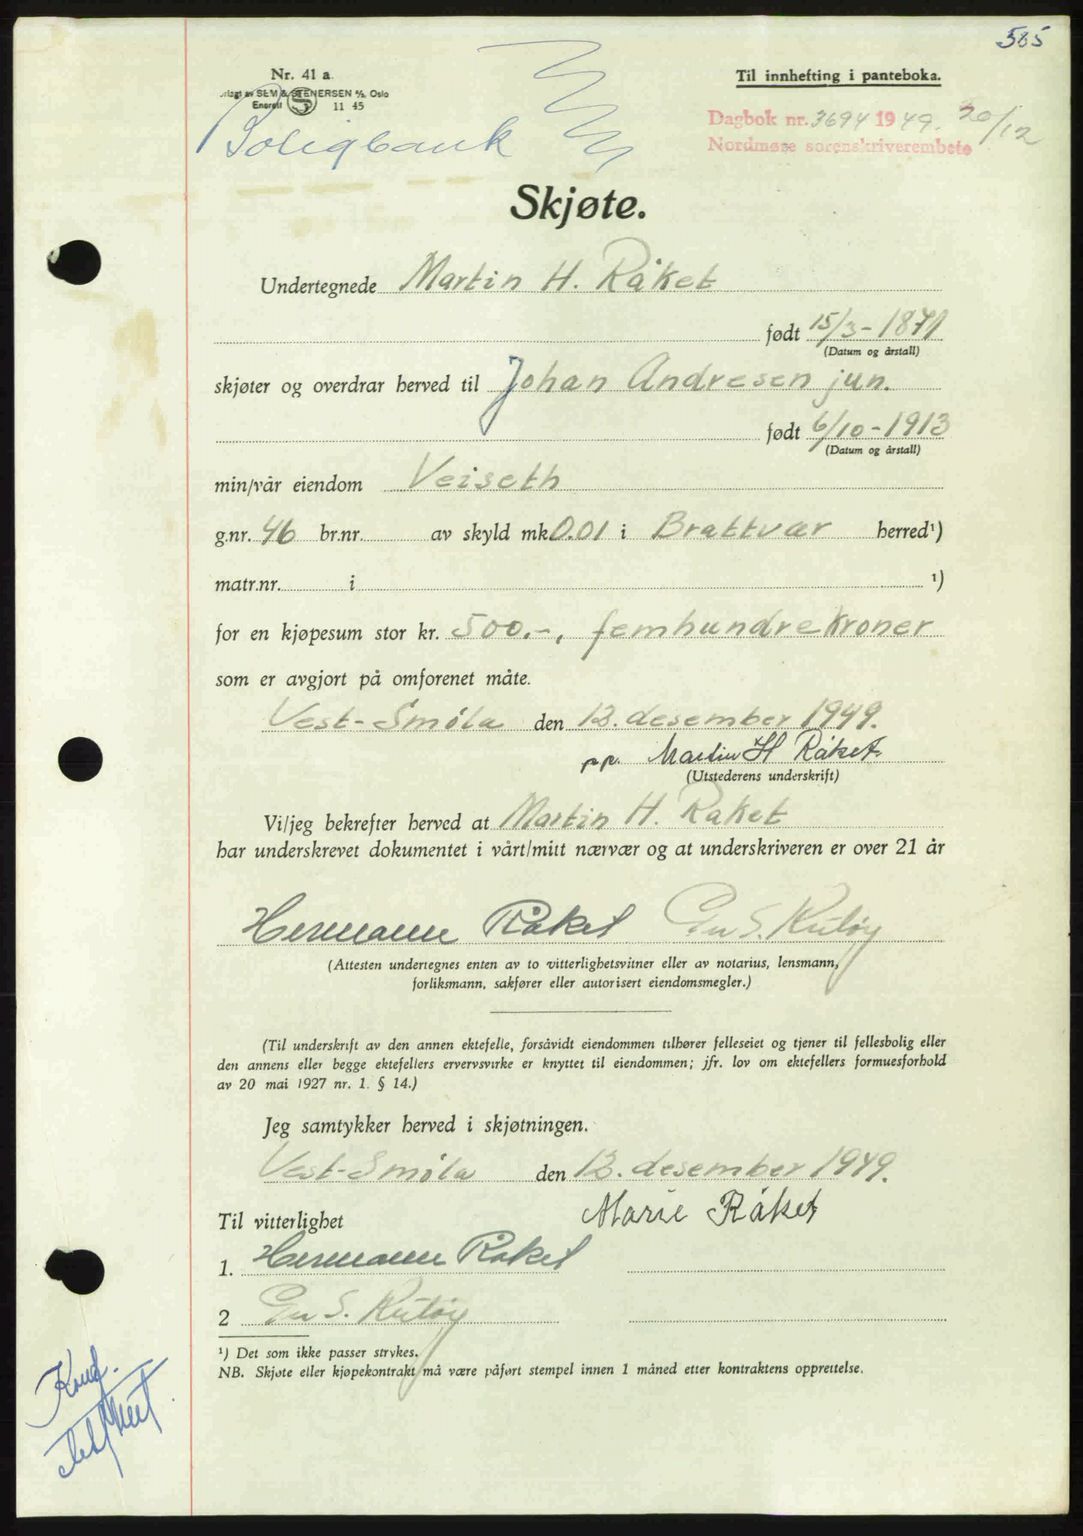 585
Nr. 41 a.
SEM & STENERSEN A/S, Oslo
Enerett S 11 45
Til innhefting i panteboka.
Boligbank
Dagbok nr. 3694 1949. 20/12
Nordmøre sorenskriverembete
Skjøte.
Undertegnede Martin H. Råket
født 15/3-1871
(Datum og årstall)
skjøter og overdrar herved til Johan Andresen jun.
født 6/10-1913
(Datum og årstall)
min/vår eiendom Veiseth
g.nr. 46 br.nr. av skyld mk 0.01 i Brattvær herred¹)
matr.nr. i ¹)
for en kjøpesum stor kr. 500.-, femhundrekroner
som er avgjort på omforenet måte.
Vest-Smøla den 13. desember 1949.
p.p. Martin H Råket.
(Utstederens underskrift)
Vi/jeg bekrefter herved at Martin H. Råket
har underskrevet dokumentet i vårt/mitt nærvær og at underskriveren er over 21 år
Hermann Råket S. Kuløy
(Attesten undertegnes enten av to vitterlighetsvitner eller av notarius, lensmann,
forliksmann, sakfører eller autorisert eiendomsmegler.)
(Til underskrift av den annen ektefelle, forsåvidt eiendommen tilhører felleseiet og tjener til fellesbolig eller
den annens eller begge ektefellers ervervsvirke er knyttet til eiendommen; jfr. lov om ektefellers formuesforhold
av 20 mai 1927 nr. 1. § 14.)
Jeg samtykker herved i skjøtningen.
Vest-Smøla den 13. desember 1949.
Marie Råket
Til vitterlighet
1. Hermann Råket
2 S. Kuløy
¹) Det som ikke passer strykes.
NB. Skjøte eller kjøpekontrakt må være påført stempel innen 1 måned etter kontraktens opprettelse.